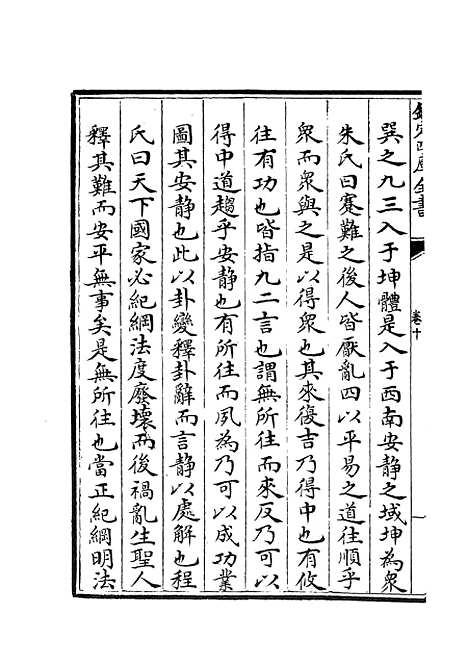 欽定四庫全書
卷十
巽之九三入于坤體是入于西南安靜之域坤為衆
朱氏曰蹇難之後人皆厭亂四以平易之道往順乎
衆而衆與之是以得衆也其來復吉乃得中也有攸
往有功也皆指九二言也謂無所往而來反乃可以
得中道趨乎安靜也有所往而夙為乃可以成功業
圖其安靜也此以卦變釋卦辭而言靜以處解也程
氏曰天下國家必紀綱法度廢壞而後禍亂生聖人
釋其難而安平無事矣是無所往也當正紀綱明法